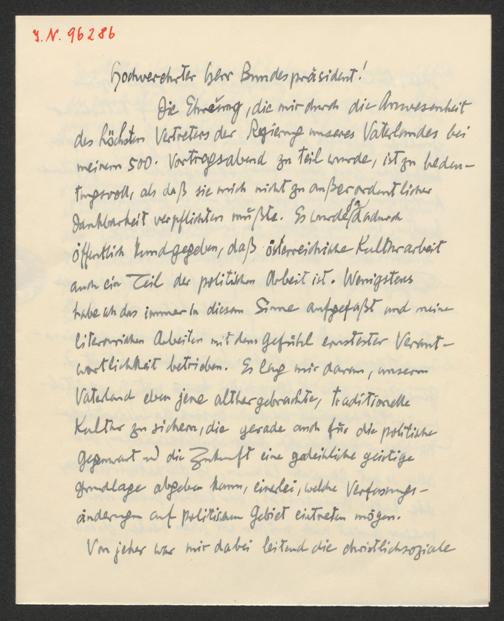 J.N. 96286
Hochverehrter Herr Bundespräsident!
Die Ehrung, die mir durch die Anwesenheit
des höchsten Vertreters der Regierung unseres Vaterlandes bei
meinem 500. Vortragsabend zu teil wurde, ist zu bedeu-
tungsvoll, als daß sie mich nicht zu außerordentlicher
Dankbarkeit verpflichten müßte. Es wurde ja dadurch
öffentlich kundgegeben, daß österreichische Kulturarbeit
auch ein Teil der politischen Arbeit ist. Wenigstens
habe ich das immer in diesem Sinne aufgefaßt und meine
literarischen Arbeiten mit dem Gefühl ernstester Verant-
wortlichkeit betrieben. Es lag mir daran, unserm
Vaterland eben jene althergebrachte, traditionelle
Kultur zu sichern, die gerade auch für die politische
Gegenwart und die Zukunft eine gedeihliche geistige
Grundlage abgeben kann, einerlei, welche Verfassungs-
änderungen auf politischem Gebiet eintreten mögen.
Von jeher war mir dabei leitend die christlichsoziale